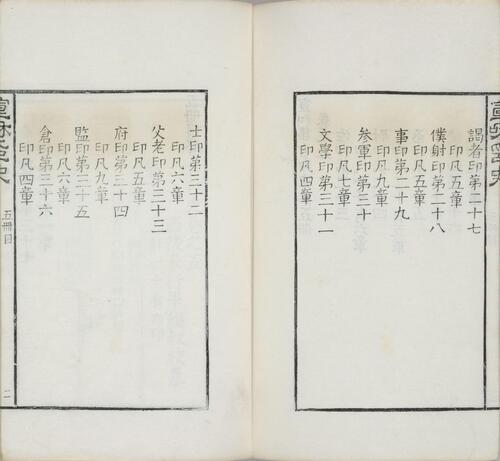 謁者印第二十七
印凡五章
僕射印第二十八
印凡五章
事印第二十九
印凡九章
參軍印第三十
印凡七章
文學印第三十一
印凡四章
士印第三十二
印凡六章
父老印第三十三
印凡五章
府印第三十四
印凡九章
監印第三十五
印凡六章
倉印第三十六
印凡四章
五冊目
二